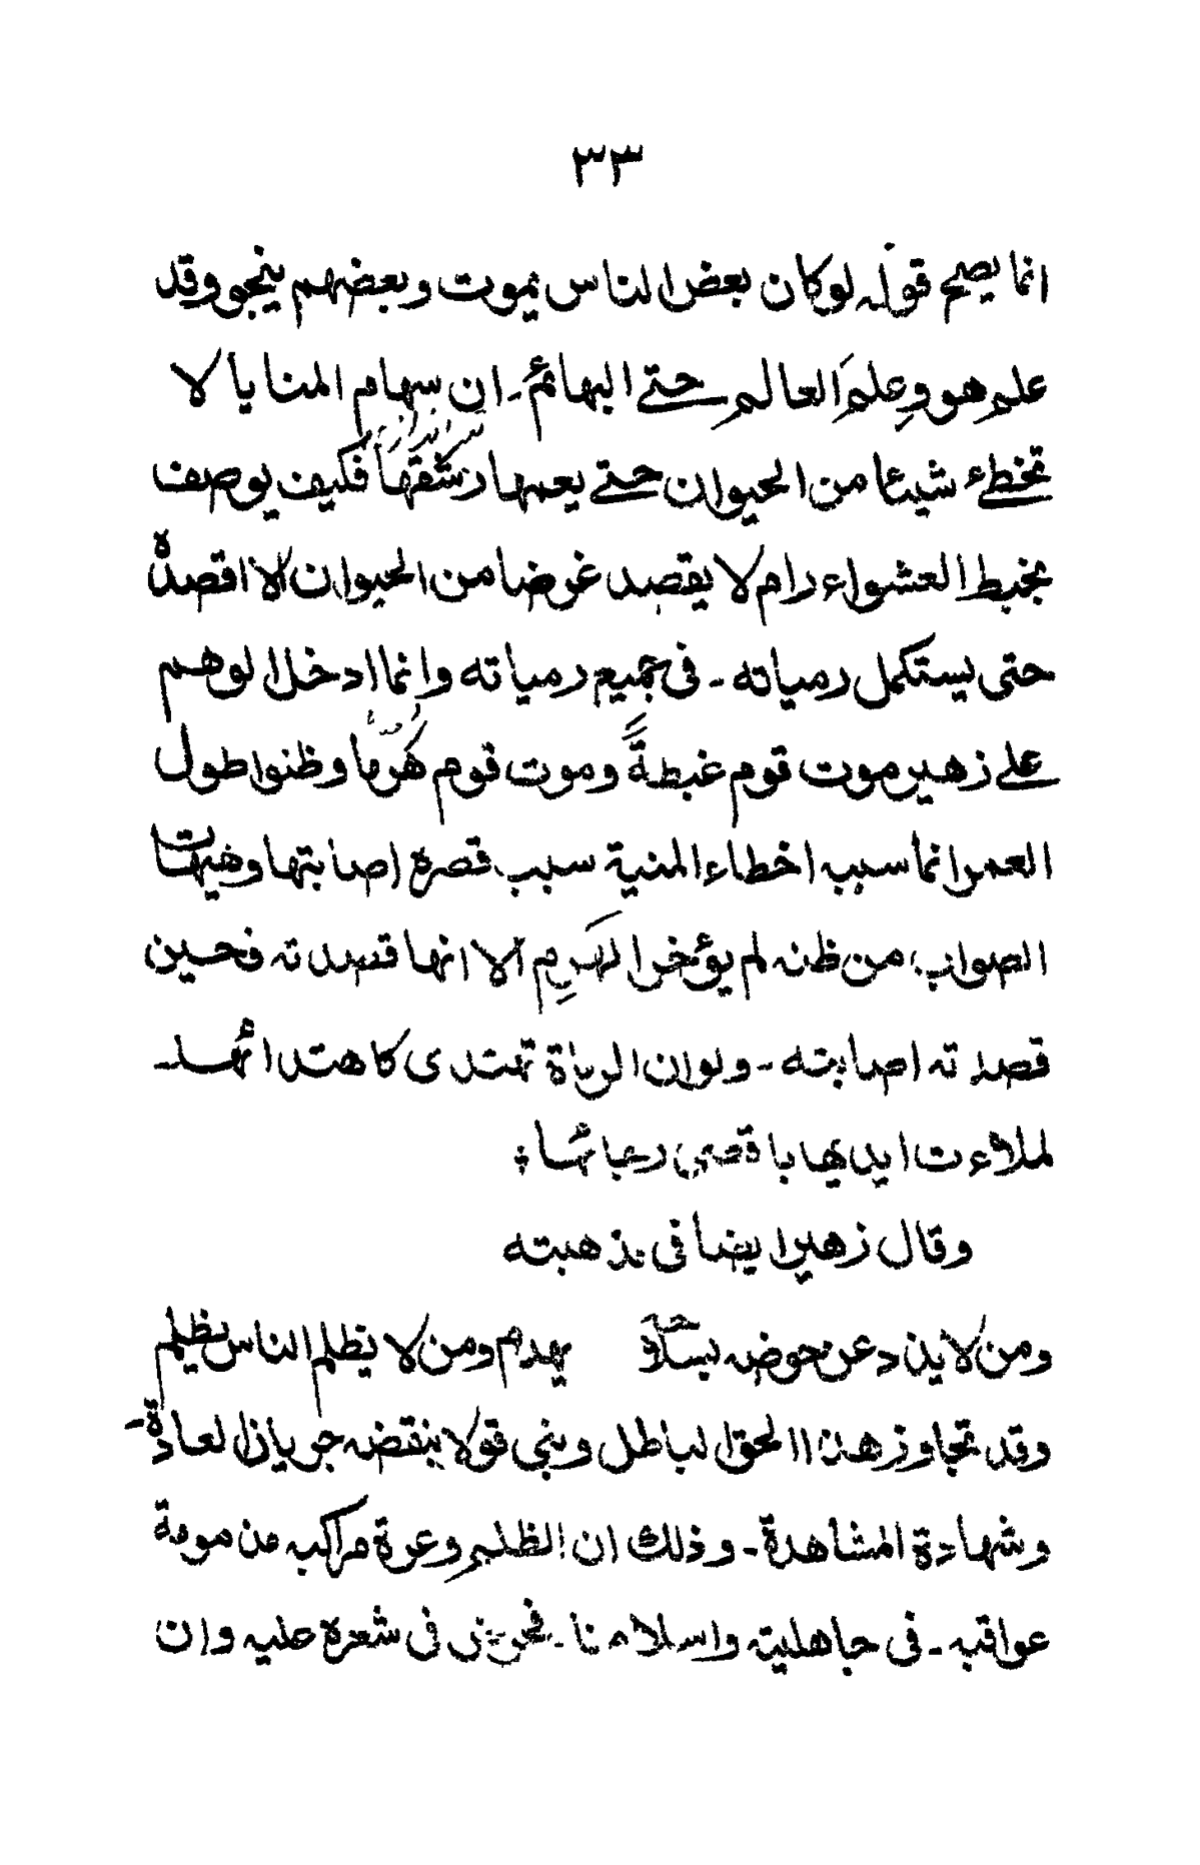 ٣٣
انما يصح قوله لوكان بعض الناس يموت وبعضهم ينجو وقد
علم هو وعِلمَ العالم حتى البهائم۔ ان سهام المنايا لا
تخطاء شيئا من الحيوان حتى يعمها رشقها فكيف يوصف
بخبط العشواء رام لا يقصد غرضا من الحيوان الا اقصدهٗ
حتى يستكمل رمياته۔ فى جميع رمياته وانما ادخل الوهم
على زهير موت قوم غبطةً وموت قوم هَرَما وظنوا طول
العمر انما سببه اخطاء المنية سبب قصره اصابتها وهيهات
الصواب من ظنه لم يؤخر الهَرِم الا انها قصدته فحين
قصدته اصابته۔ ولوان الرماة تهتدى كاهتدائها
لملاءت ايديها باقصى رجائها
وقال زهير ايضا فى مذهبته
ومن لا يذد عن حوضه بسلاحه يهدم ومن لا يظلم الناس يظلم
وقد تجاوز هذا الحق الباطل وبنى قولا ينقضه جريان العادة۔
وشهادة المشاهدة۔ وذلك ان الظلم وعرة مراكبه مذمومة
عواقبه۔ فى جاهليته واسلامنا۔ فحرض فى شعره عليه وان